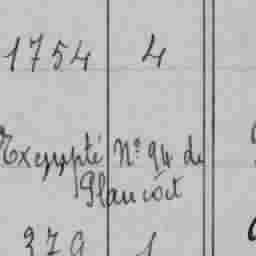 1754 4
Exempté N° 94 de
Plancoët
379 1